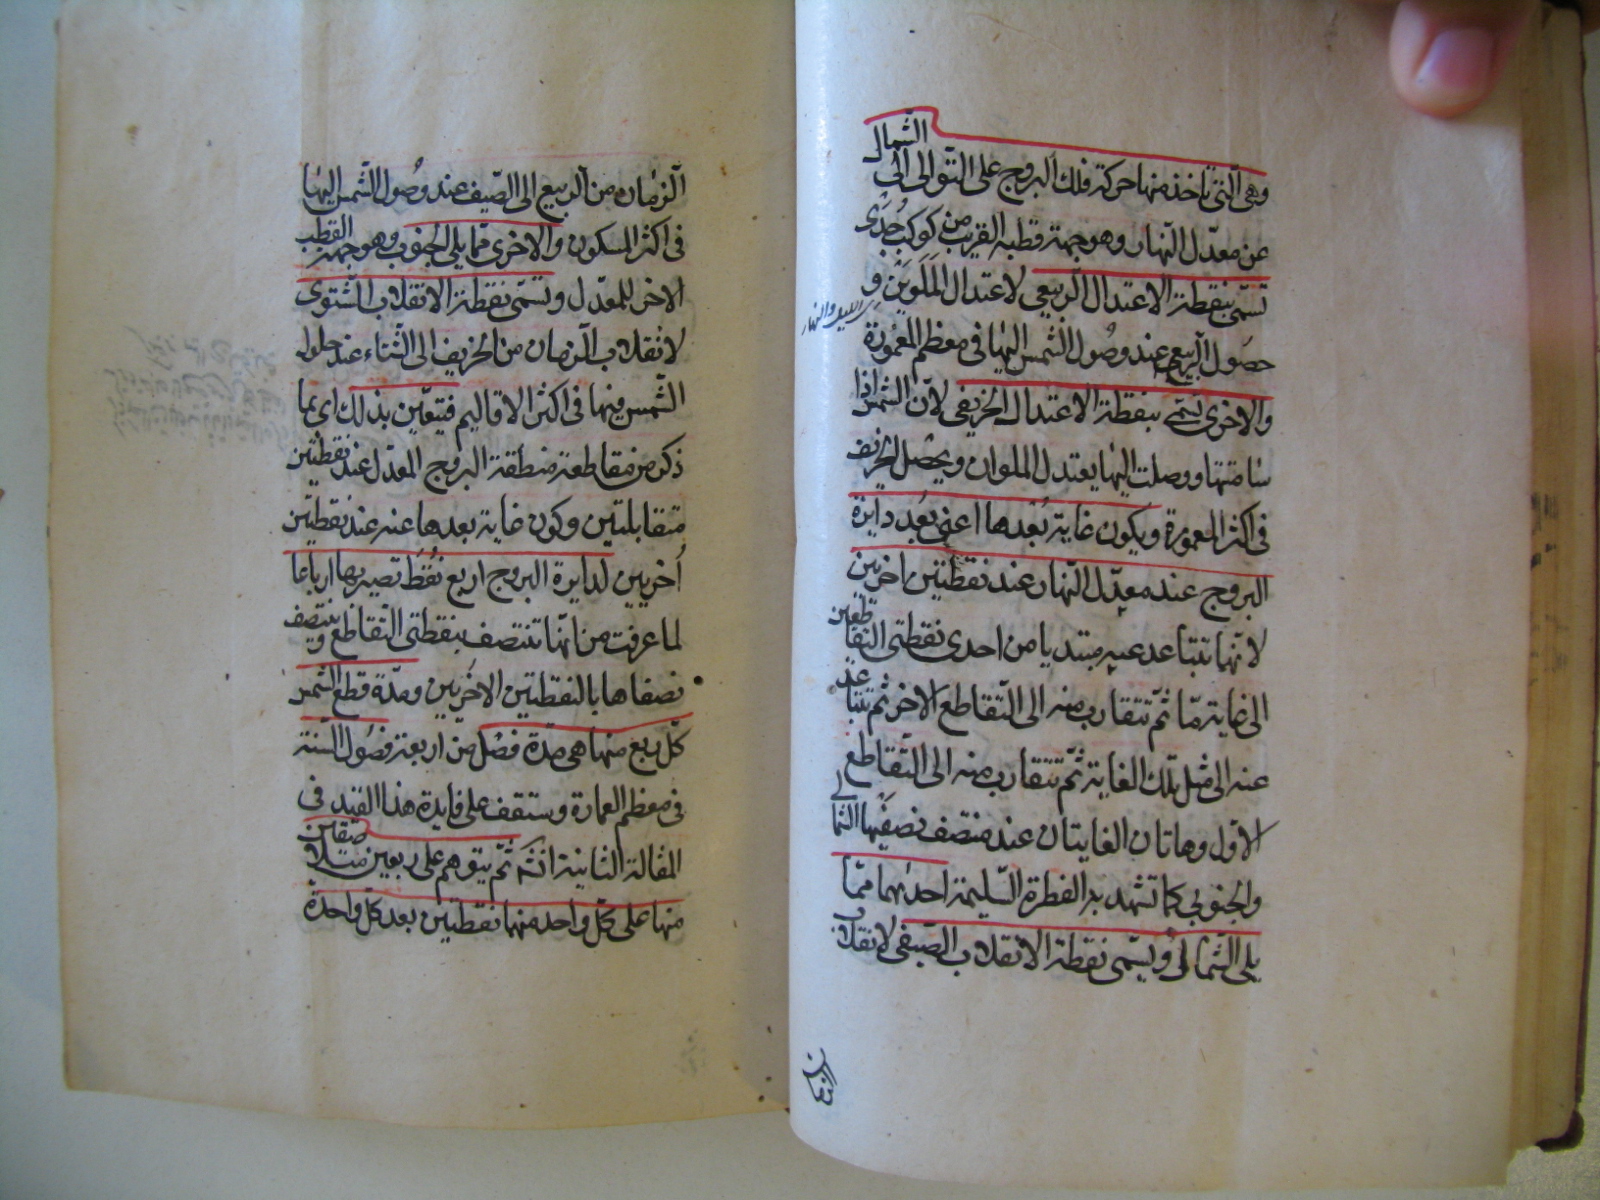 وهى الّتى تأخذ منها حركة فلك البروج على التّوالى الى الشّمال
عن معدّل النّهار وهو جهة قطبه القريب من كوكب جُدَى
تسمّى بنقطة الاعتدال الرّبيعى لاعتدال المَلَوَيْن و
اى الليل والنهار
حصول الرّبيع عند وصُول الشّمس اليها فى معظم المعمُورة
والاخرى تسمّى بنقطة الاعتدال الخريفى لانّ الشّمس اذا
سامتتها ووصلت اليها يعتدل الملوان ويحصل الخريف
فى اكثر المعمورة ويكون غاية بُعْدها اعنى بُعد دايرة
البروج عنده معدّل النّهار عند نقطتين اخريين
لانّها تتباعد عنه مبتديا من احدى نقطتى التّقاطعين
الى غاية مّا ثمّ تتقارب منه الى التّقاطع الاخر ثم تتباعد
عنه الى مثل تلك الغاية ثمّ تتقارب منه الى التّقاطع
الاوّل وهاتان الغايتان عند منتصف نصفَيها الشّمالى
والجنوبى كما تشهد به الفطرة السّليمة احدٰهما ممّا
يلى الشّمالى ويسمّى نقطة الانقلاب الصّيفى لانقلاب
الزمان
الزمان من الرّبيع الى الصّيف عند وصُول الشّمس اليها
فى اكثر المسكون والاخرى ممّا يلى الجنوب وهو جهة القطب
الاخر للمعدّل وتسمّى نقطة الانقلاب الشّتوى
لانقلاب الزمان من الخريف الى الشّتاء عند حلول
الشّمس فيها فى اكثر الاقاليم فيتعيّن بذلك اى بما
ذكر من مقاطعة منطقة البروج المعدّل عند نقطتين
متقابلتين وكون غاية بعدها عنه عند نقطتين
اُخريين لدايرة البروج اربع نُقَط تصير بها ارباعا
لما عرفت من انّها تنتصف بنقطتى التّقاطع وينتصف
نصفاها بالنقطتين الاخريين ومدّة قطع الشّمس
كلّ ربع منها هى مدّة فصْل من اربعة فصُول السّنة
فى معظم العمارة وستقف على فايدة هذا القيد فى
المقالة الثانية انتهى ثمّ يتوهم على ربعين متلاصقين
منها على كلّ واحد منها نقطتين بعد كلّ واحدة